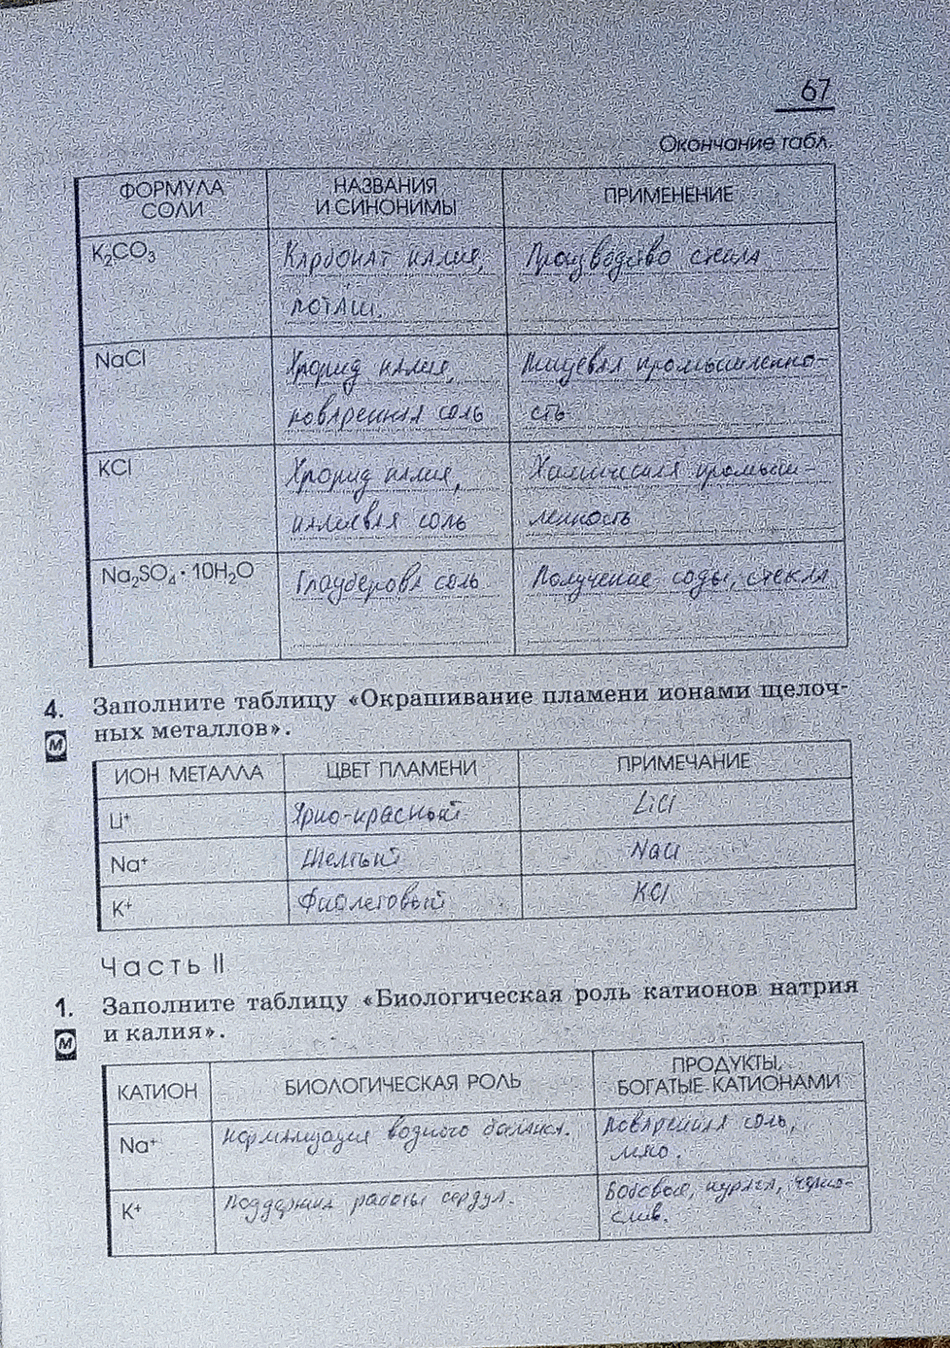 67
Окончание табл.
ФОРМУЛА СОЛИ
НАЗВАНИЯ И СИНОНИМЫ
ПРИМЕНЕНИЕ
K₂CO₃
Карбонат калия,
поташ.
Производство стекла
NaCl
Хлорид калия,
поваренная соль
Пищевая промышленно-
сть
KCl
Хлорид калия,
калиевая соль
Химическая промыш-
ленность
Na₂SO₄ · 10H₂O
Глауберова соль
Получение соды, стекла
4. Заполните таблицу «Окрашивание пламени ионами щелоч-
ных металлов».
М
ИОН МЕТАЛЛА
ЦВЕТ ПЛАМЕНИ
ПРИМЕЧАНИЕ
Li⁺
Ярко-красный
LiCl
Na⁺
Желтый
NaCl
K⁺
Фиолетовый
KCl
Часть II
1. Заполните таблицу «Биологическая роль катионов натрия
и калия».
М
КАТИОН
БИОЛОГИЧЕСКАЯ РОЛЬ
ПРОДУКТЫ,
БОГАТЫЕ КАТИОНАМИ
Na⁺
Нормализация водного баланса.
Поваренная соль,
мясо.
K⁺
работы сердца.
Бобовые, курага, черно-
слив.